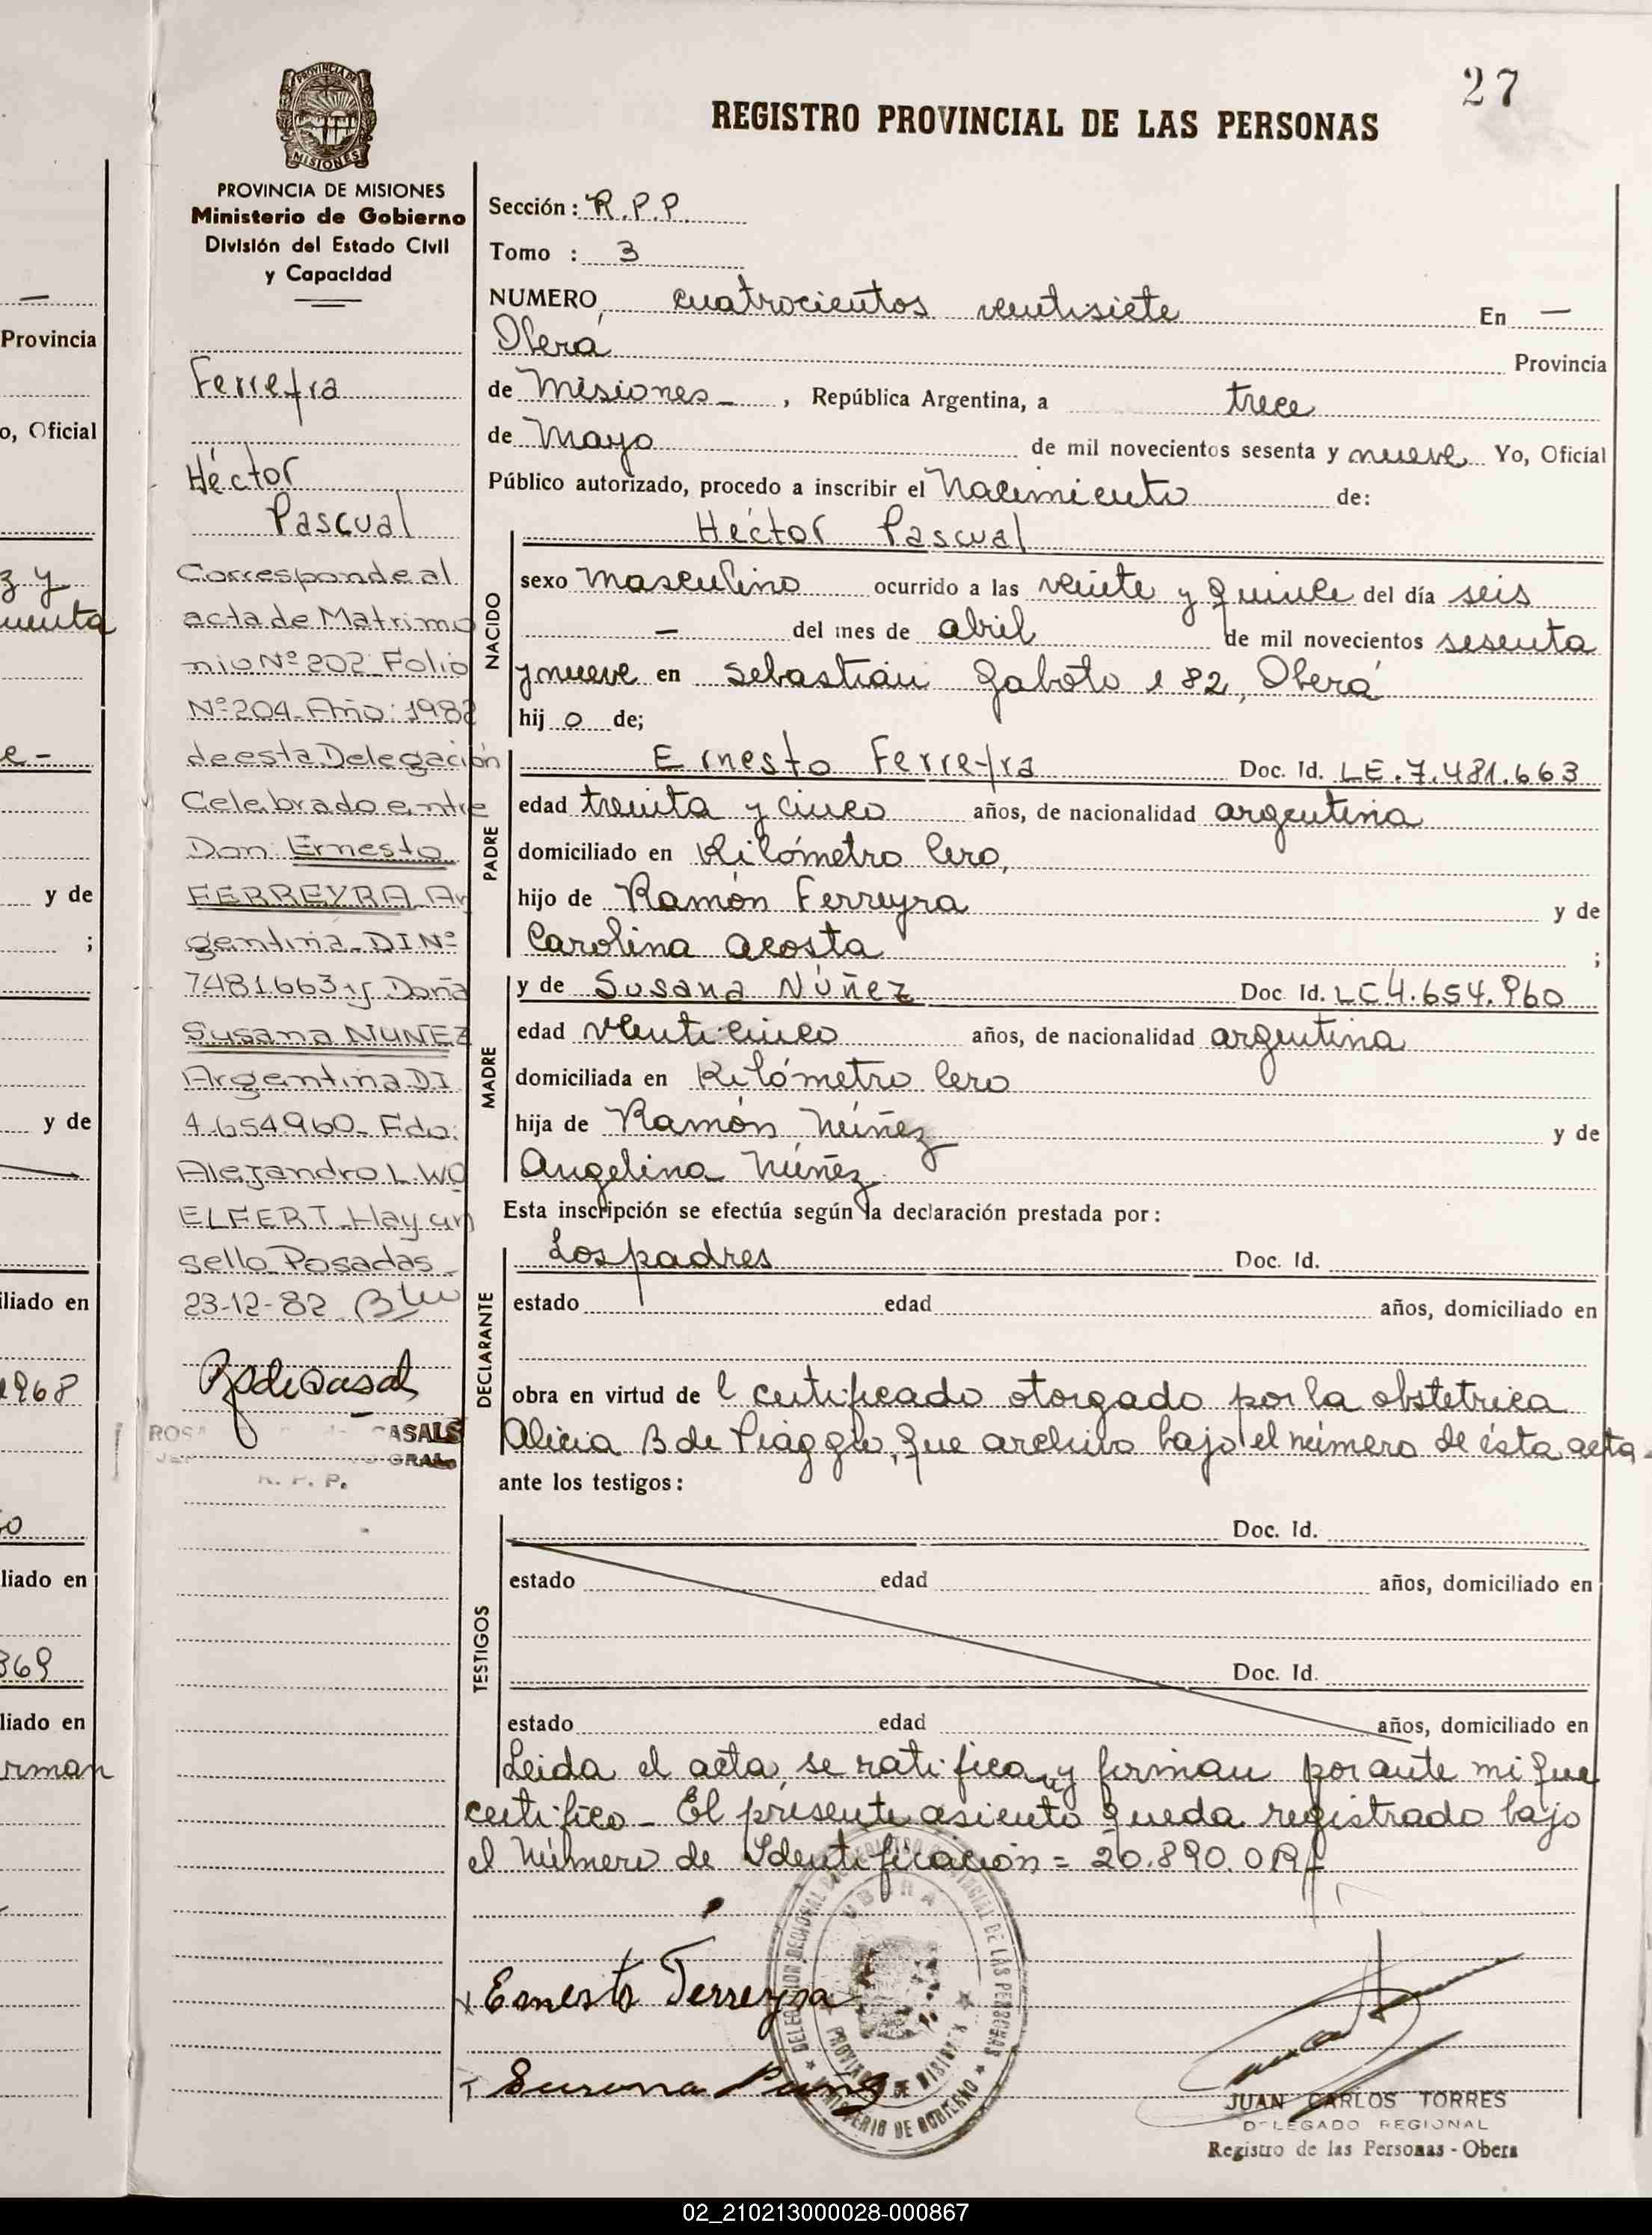 27
REGISTRO PROVINCIAL DE LAS PERSONAS
PROVINCIA DE MISIONES
MISIONES
PROVINCIA DE MISIONES
Ministerio de Gobierno
División del Estado Civil
y Capacidad
Ferreyra
Héctor
Pascual
Corresponde al
acta de Matrimo
nio Nº 202 Folio
Nº 204 Año: 1982
de esta Delegación
Celebrado entre
Don Ernesto
FERREYRA Ar
gentina DI Nº
7481663 y Doña
Susana NUNEZ
Argentina DI
4.654960 Fdo:
Alejandro L. WO
ELFERT Hay un
sello Posadas
23-12-82
CASALS
GRAL.
R. P. P.
Sección: R.P.P.
Tomo : 3
NUMERO, cuatrocientos ventisiete En —
Oberá Provincia
de Misiones , República Argentina, a trece
de Mayo de mil novecientos sesenta y nueve Yo, Oficial
Público autorizado, procedo a inscribir el Nacimiento de:
Héctor Pascual
NACIDO
sexo masculino ocurrido a las veinte y quince del día seis
— del mes de abril de mil novecientos sesenta
y nueve en Sebastián Gaboto 182, Oberá
hij o de;
PADRE
Ernesto Ferreyra Doc. Id. LE.7.481.663
edad treinta y cinco años, de nacionalidad argentina
domiciliado en Kilómetro Cero,
hijo de Ramón Ferreyra y de
Carolina Acosta ;
MADRE
y de Susana Núñez Doc. Id. LC 4.654.960
edad venticinco años, de nacionalidad argentina
domiciliada en Kilómetro Cero
hija de Ramón Núñez y de
Angelina Núñez
Esta inscripción se efectúa según la declaración prestada por:
DECLARANTE
Los padres Doc. Id.
estado edad años, domiciliado en
obra en virtud de l certificado otorgado por la obstetrica
Alicia B de Piaggio, que archivo bajo el número de ésta acta
ante los testigos:
TESTIGOS
Doc. Id.
estado edad años, domiciliado en
Doc. Id.
estado edad años, domiciliado en
Leida el acta, se ratifican y firman por ante mi que
certifico - El presente asiento queda registrado bajo
el Número de Identificación = 20.890.019
Ernesto Ferreyra
JUAN CARLOS TORRES
DELEGADO REGIONAL
Registro de las Personas - Obera
Provincia
o, Oficial
z y
uenta
e -
y de
;
y de
iliado en
1968
liado en
869
liado en
rman
02_210213000028-000867